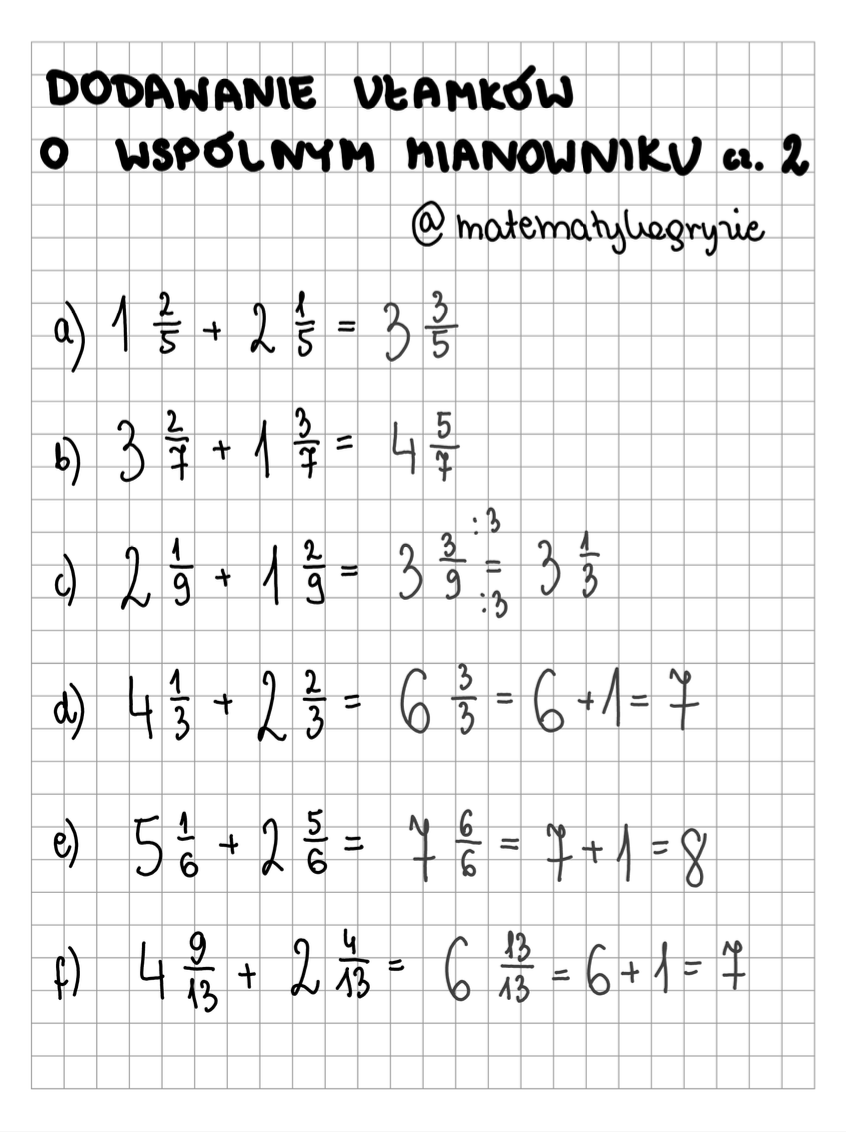 DODAWANIE UŁAMKÓW
O WSPÓLNYM MIANOWNIKU cz. 2
@matematykagryzie
a) 1 2/5 + 2 1/5 = 3 3/5
b) 3 2/7 + 1 3/7 = 4 5/7
c) 2 1/9 + 1 2/9 = 3 3/9 :3 = :3 3 1/3
d) 4 1/3 + 2 2/3 = 6 3/3 = 6 + 1 = 7
e) 5 1/6 + 2 5/6 = 7 6/6 = 7 + 1 = 8
f) 4 9/13 + 2 4/13 = 6 13/13 = 6 + 1 = 7